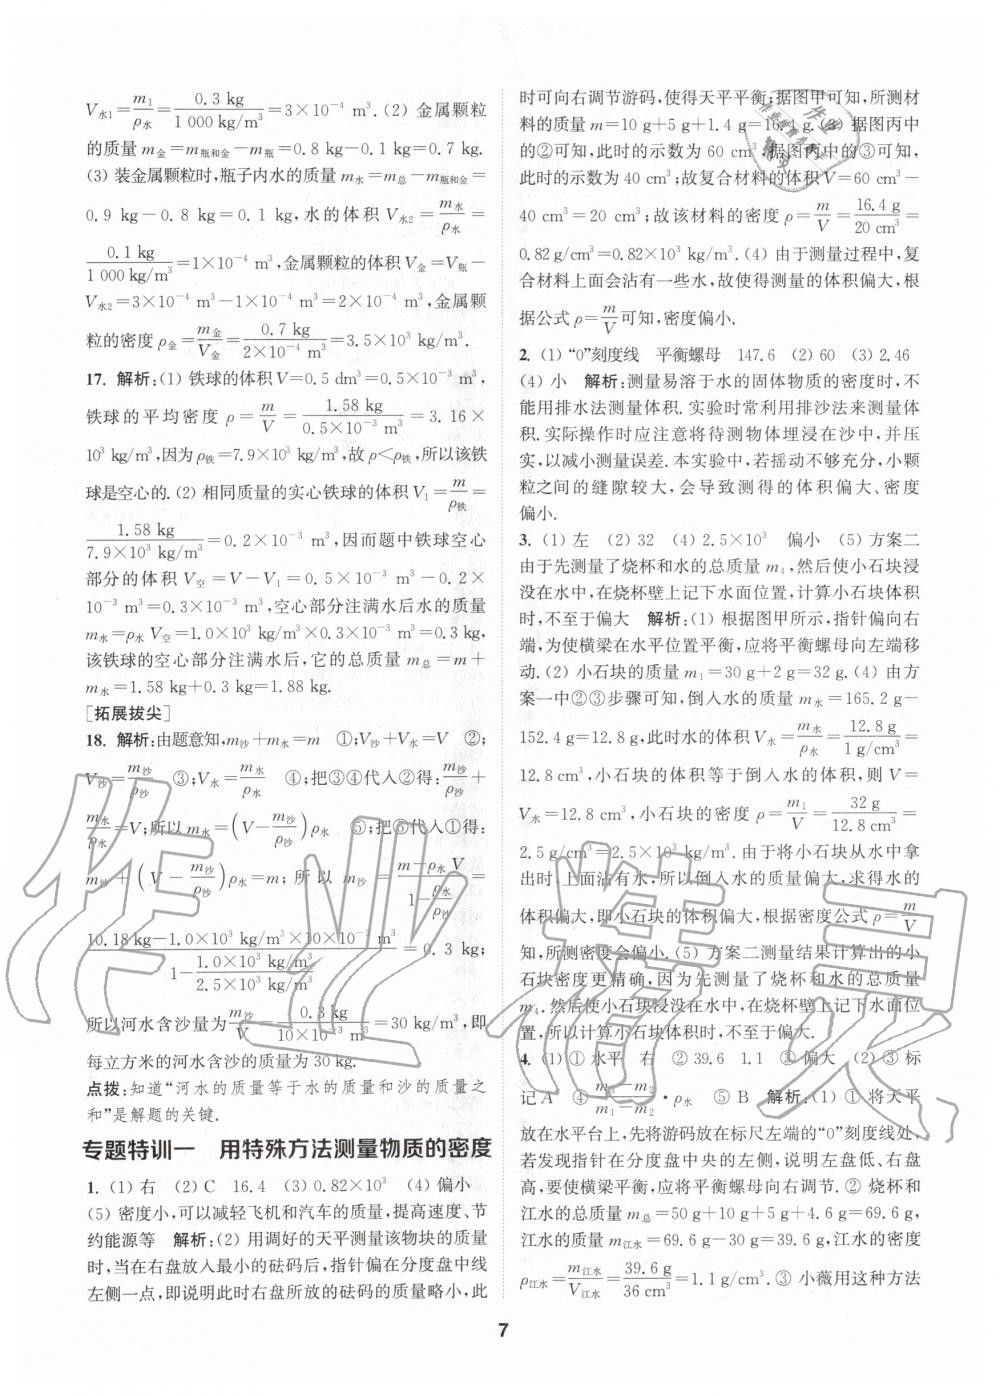 V水1=m1/ρ水=0.3 kg/1 000 kg/m³=3×10⁻⁴ m³.(2) 金属颗粒
的质量 m金=m瓶和金-m瓶=0.8 kg-0.1 kg=0.7 kg.
(3) 装金属颗粒时,瓶子内水的质量 m水=m总-m瓶和金=
0.9 kg-0.8 kg=0.1 kg,水的体积 V水2=m水/ρ水=
0.1 kg/1 000 kg/m³=1×10⁻⁴ m³,金属颗粒的体积 V金=V瓶-
V水2=3×10⁻⁴ m³-1×10⁻⁴ m³=2×10⁻⁴ m³,金属颗
粒的密度 ρ金=m金/V金=0.7 kg/2×10⁻⁴ m³=3.5×10³ kg/m³.
17. 解析:(1) 铁球的体积 V=0.5 dm³=0.5×10⁻³ m³,
铁球的平均密度 ρ=m/V=1.58 kg/0.5×10⁻³ m³=3.16×
10³ kg/m³,因为 ρ铁=7.9×10³ kg/m³,故 ρ<ρ铁,所以该铁
球是空心的.(2) 相同质量的实心铁球的体积 V1=m/ρ铁=
1.58 kg/7.9×10³ kg/m³=0.2×10⁻³ m³,因而题中铁球空心
部分的体积 V空=V-V1=0.5×10⁻³ m³-0.2×
10⁻³ m³=0.3×10⁻³ m³,空心部分注满水后水的质量
m水=ρ水 V空=1.0×10³ kg/m³×0.3×10⁻³ m³=0.3 kg,
该铁球的空心部分注满水后,它的总质量 m总=m+
m水=1.58 kg+0.3 kg=1.88 kg.
[拓展拔尖]
18. 解析:由题意知,m沙+m水=m ①;V沙+V水=V ②;
V沙=m沙/ρ沙 ③;V水=m水/ρ水 ④;把③④代入②得:m沙/ρ沙+
m水/ρ水=V;所以 m水=(V-m沙/ρ沙)ρ水 ⑤;把⑤代入①得:
m沙+(V-m沙/ρ沙)ρ水=m;所以 m沙=m-ρ水 V/1-ρ水/ρ沙=
10.18 kg-1.0×10³ kg/m³×10×10⁻³ m³/1-1.0×10³ kg/m³/2.5×10³ kg/m³=0.3 kg;
所以河水含沙量为m沙/V=0.3 kg/10×10⁻³ m³=30 kg/m³,即
每立方米的河水含沙的质量为 30 kg.
点拨:知道“河水的质量等于水的质量和沙的质量之
和”是解题的关键.
专题特训一 用特殊方法测量物质的密度
1. (1) 右 (2) C 16.4 (3) 0.82×10³ (4) 偏小
(5) 密度小,可以减轻飞机和汽车的质量,提高速度、节
约能源等 解析:(2) 用调好的天平测量该物块的质量
时,当在右盘放入最小的砝码后,指针偏在分度盘中线
左侧一点,即说明此时右盘所放的砝码的质量略小,此
时可向右调节游码,使得天平平衡;据图甲可知,所测材
料的质量 m=10 g+5 g+1.4 g=16.4 g.(3) 据图丙中
的②可知,此时的示数为 60 cm³,据图丙中的③可知,
此时的示数为 40 cm³;故复合材料的体积 V=60 cm³-
40 cm³=20 cm³;故该材料的密度 ρ=m/V=16.4 g/20 cm³=
0.82 g/cm³=0.82×10³ kg/m³.(4) 由于测量过程中,复
合材料上面会沾有一些水,故使得测量的体积偏大,根
据公式 ρ=m/V可知,密度偏小.
2. (1) “0”刻度线 平衡螺母 147.6 (2) 60 (3) 2.46
(4) 小 解析:测量易溶于水的固体物质的密度时,不
能用排水法测量体积.实验时常利用排沙法来测量体
积.实际操作时应注意将待测物体埋浸在沙中,并压
实,以减小测量误差.本实验中,若摇动不够充分,小颗
粒之间的缝隙较大,会导致测得的体积偏大、密度
偏小.
3. (1) 左 (2) 32 (4) 2.5×10³ 偏小 (5) 方案二
由于先测量了烧杯和水的总质量 m4,然后使小石块浸
没在水中,在烧杯壁上记下水面位置,计算小石块体积
时,不至于偏大 解析:(1) 根据图甲所示,指针偏向右
端,为使横梁在水平位置平衡,应将平衡螺母向左端移
动.(2) 小石块的质量 m1=30 g+2 g=32 g.(4) 由方
案一中②③步骤可知,倒入水的质量 m水=165.2 g-
152.4 g=12.8 g,此时水的体积 V水=m水/ρ水=12.8 g/1 g/cm³=
12.8 cm³,小石块的体积等于倒入水的体积,则 V=
V水=12.8 cm³,小石块的密度 ρ=m1/V=32 g/12.8 cm³=
2.5 g/cm³=2.5×10³ kg/m³.由于将小石块从水中拿
出时,上面沾有水,所以倒入水的质量偏大,求得水的
体积偏大,即小石块的体积偏大,根据密度公式 ρ=m/V
知,所测密度会偏小.(5) 方案二测量结果计算出的小
石块密度更精确,因为先测量了烧杯和水的总质量
m4,然后使小石块浸没在水中,在烧杯壁上记下水面位
置,所以计算小石块体积时,不至于偏大.
4. (1) ① 水平 右 ② 39.6 1.1 ③ 偏大 (2) ③ 标
记 A ④ m-m2/m1-m2·ρ水 ⑤ B 解析:(1) ① 将天平
放在水平台上,先将游码放在标尺左端的“0”刻度线处,
若发现指针在分度盘中央的左侧,说明左盘低、右盘
高,要使横梁平衡,应将平衡螺母向右调节.② 烧杯和
江水的总质量 m总=50 g+10 g+5 g+4.6 g=69.6 g,
江水的质量 m江水=69.6 g-30 g=39.6 g,江水的密度
ρ江水=m江水/V江水=39.6 g/36 cm³=1.1 g/cm³.③ 小薇用这种方法
7
作业精灵